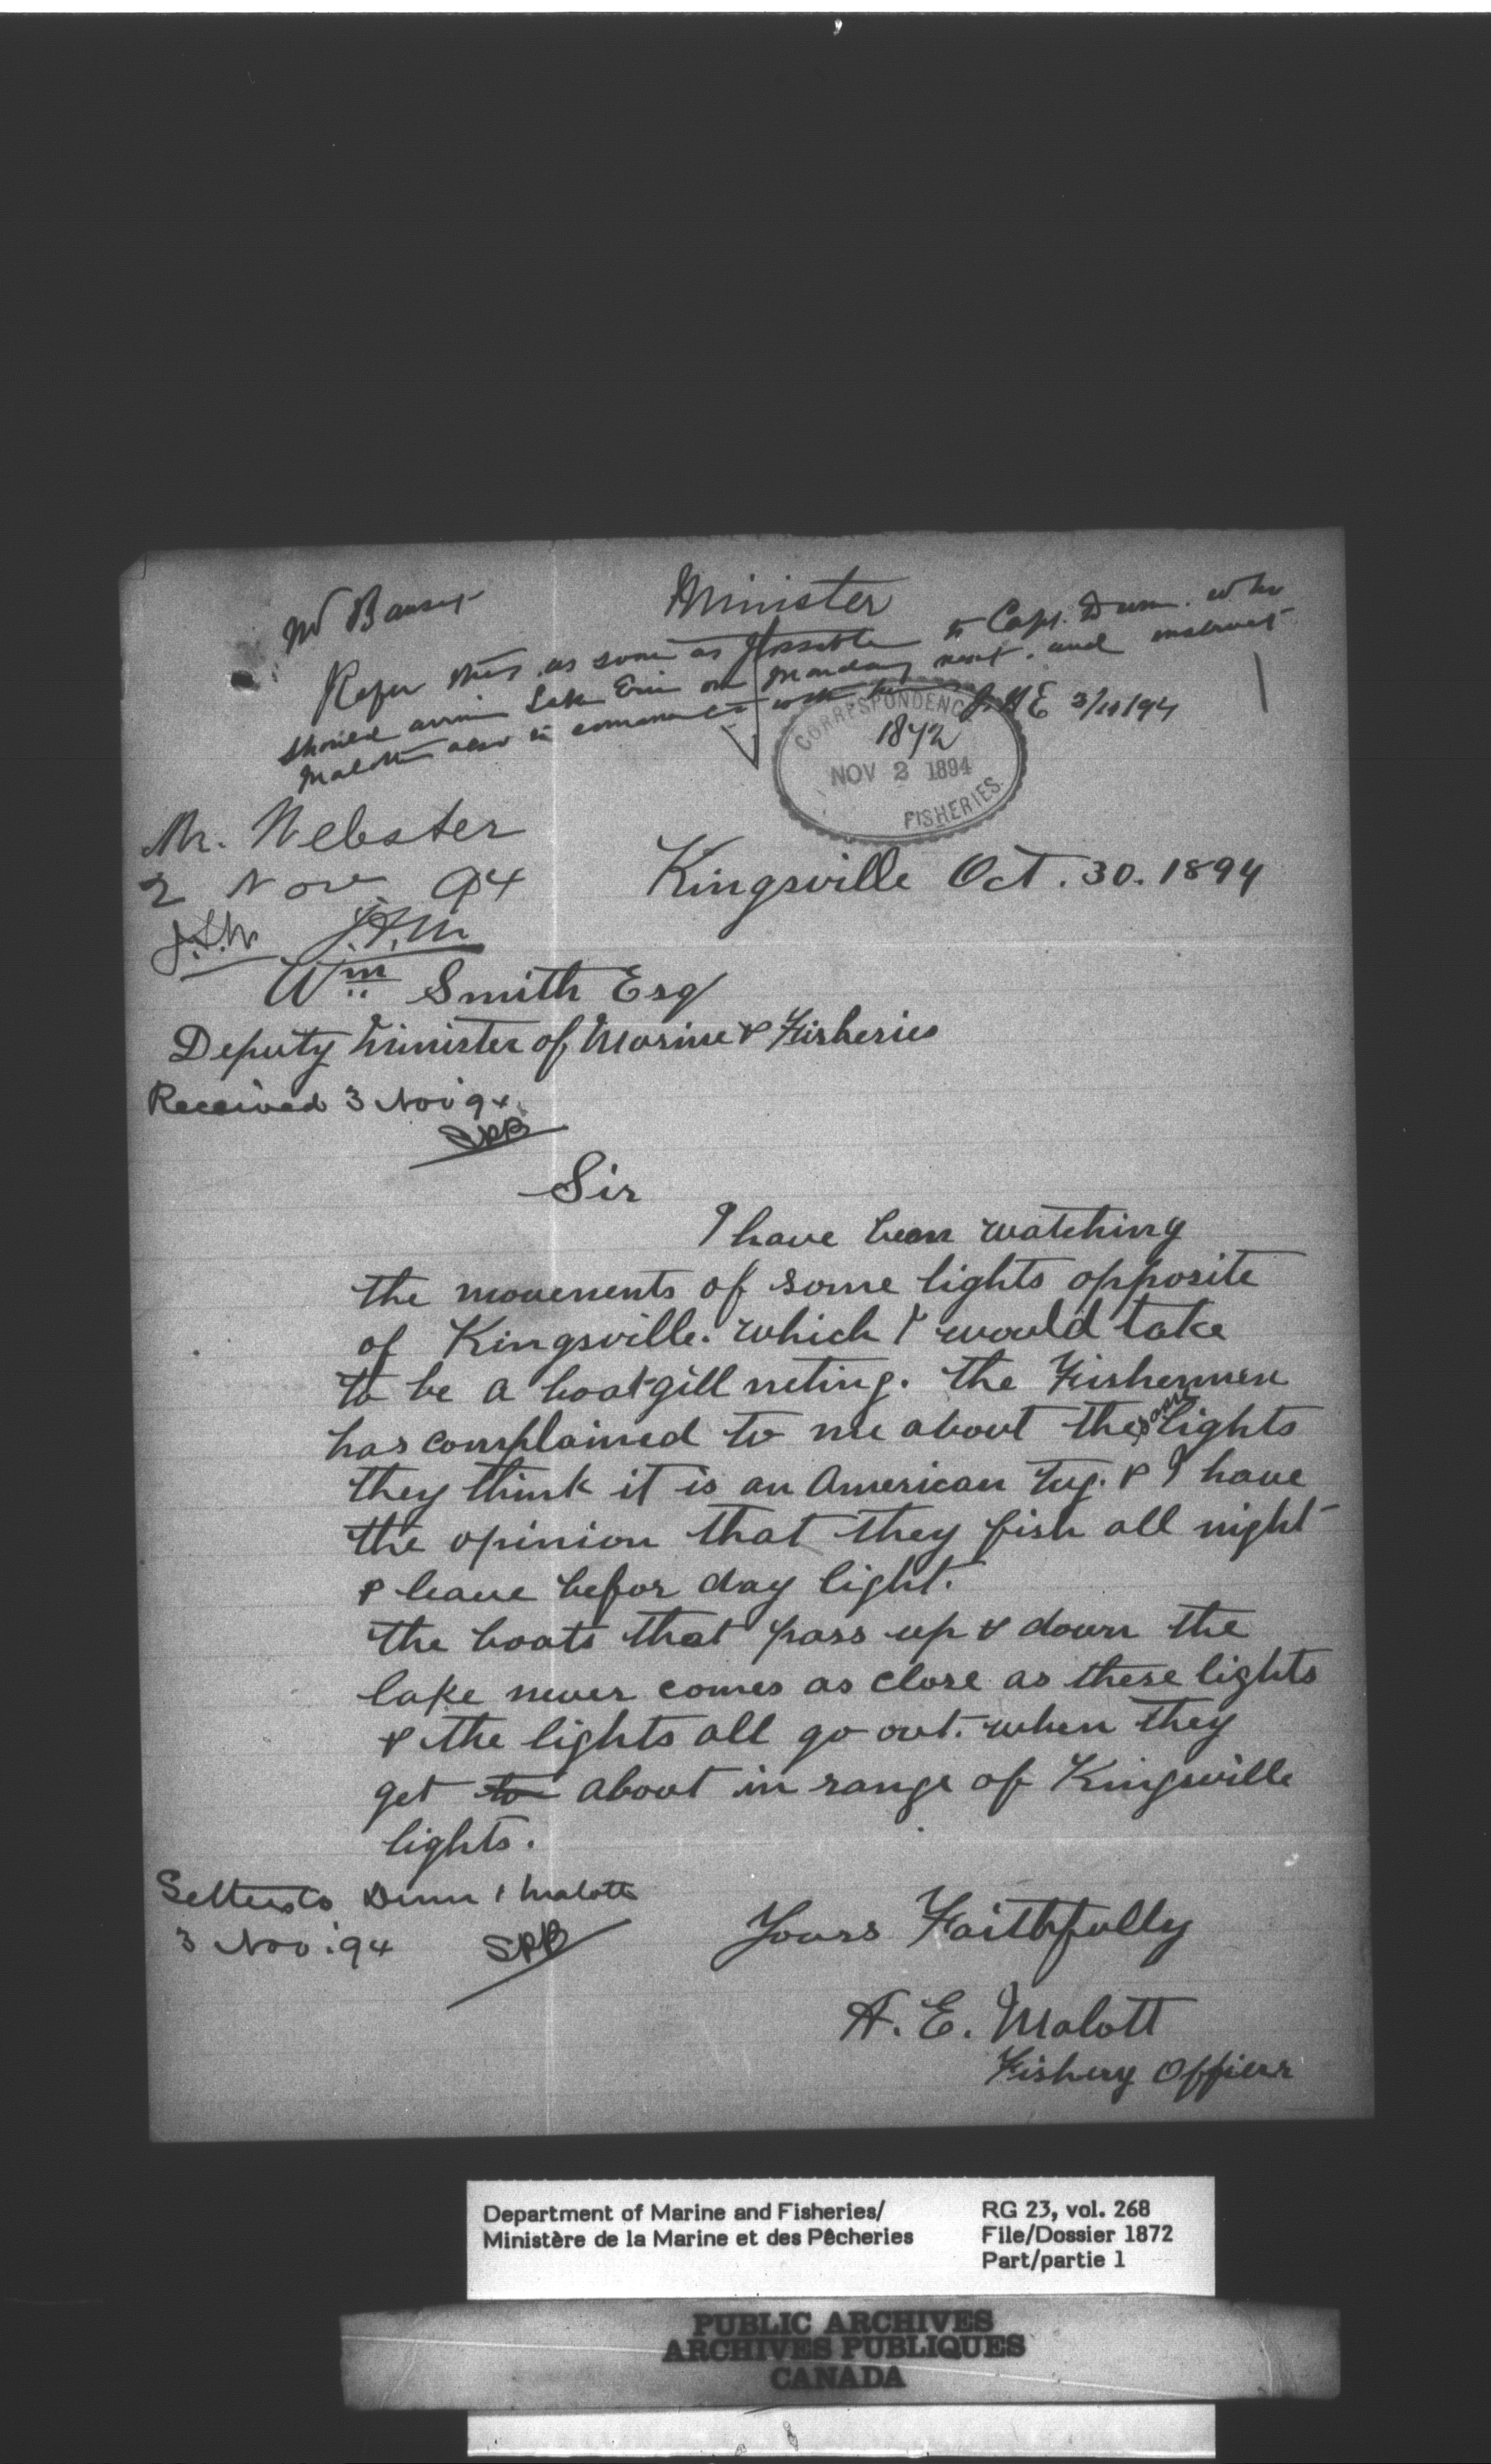 Minister
Refer this as soon as possible to Capt. Dunn. who
should arrive Lake Erie on Monday next. and instruct
Malott also to communicate with him
3/11/94
CORRESPONDENCE
1872
NOV 2 1894
FISHERIES.
Mr. Webster
2 Nov 94
Kingsville Oct. 30. 1894
Wm Smith Esq
Deputy Minister of Marine & Fisheries
Received 3 Nov 94.
SPB
Sir
I have been watching
the movements of some lights opposite
of Kingsville. which I would take
to be a boat gill neting. the Fishermen
has complained to me about the same lights
they think it is an American tug. & I have
the opinion that they fish all night
& leave befor day light.
the boats that pass up & down the
lake never comes as close as these lights
& the lights all go out. when they
get to about in range of Kingsville
lights.
Letters to Dunn & Malott
3 Nov. 94 SPB
Yours Faithfully
A. E. Malott
Fishery Officer
Department of Marine and Fisheries/
Ministère de la Marine et des Pêcheries
RG 23, vol. 268
File/Dossier 1872
Part/partie 1
PUBLIC ARCHIVES
ARCHIVES PUBLIQUES
CANADA